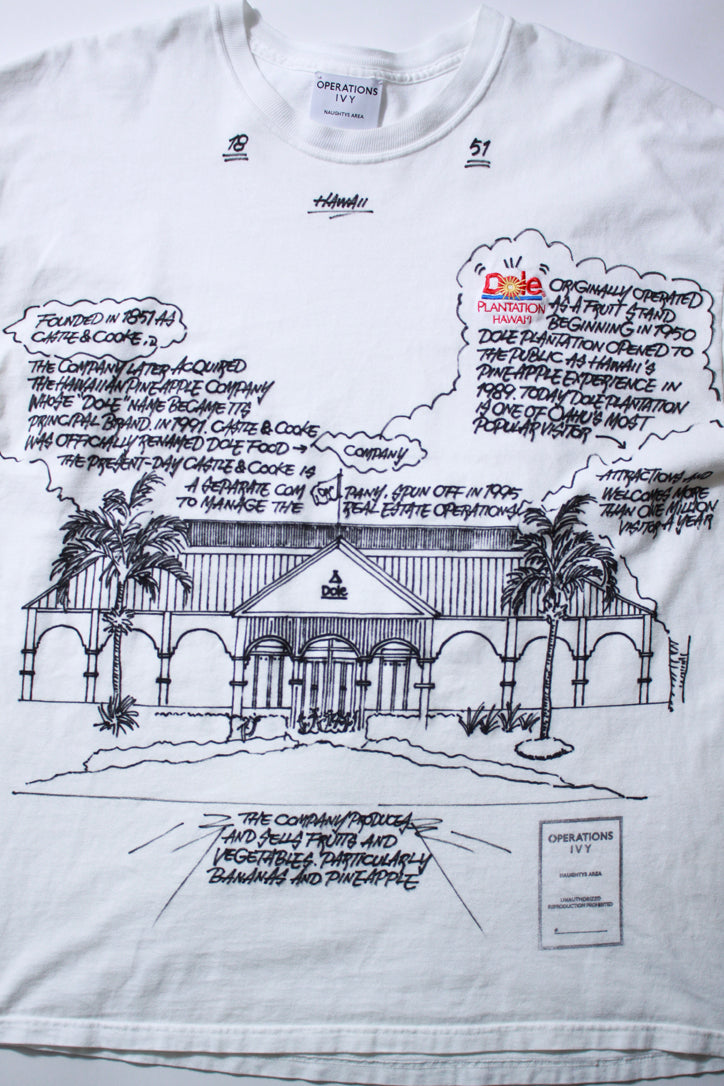 OPERATIONS
IVY
NAUGHTYS AREA
18 51
HAWAII
FOUNDED IN 1851 AS
CASTLE & COOKE,
THE COMPANY LATER ACQUIRED
THE HAWAIIAN PINEAPPLE COMPANY
WHOSE "DOLE" NAME BECAME ITS
PRINCIPAL BRAND. IN 1991, CASTLE & COOKE
WAS OFFICIALLY RENAMED DOLE FOOD →
COMPANY
THE PRESENT-DAY CASTLE & COOKE IS
A SEPARATE COM PANY, SPUN OFF IN 1995
TO MANAGE THE REAL ESTATE OPERATIONS
Dole
PLANTATION
HAWAI'I
ORIGINALLY OPERATED
AS A FRUIT STAND
BEGINNING IN 1950
DOLE PLANTATION OPENED TO
THE PUBLIC AS HAWAII'S
PINEAPPLE EXPERIENCE IN
1989. TODAY DOLE PLANTATION
IS ONE OF OAHU'S MOST
POPULAR VISITOR →
ATTRACTIONS AND
WELCOMES MORE
THAN ONE MILLION
VISITOR A YEAR
Dole
Dole
THE COMPANY PRODUCES
AND SELLS FRUITS AND
VEGETABLES. PARTICULARLY
BANANAS AND PINEAPPLE
OPERATIONS
IVY
NAUGHTYS AREA
UNAUTHORIZED
REPRODUCTION PROHIBITED
#